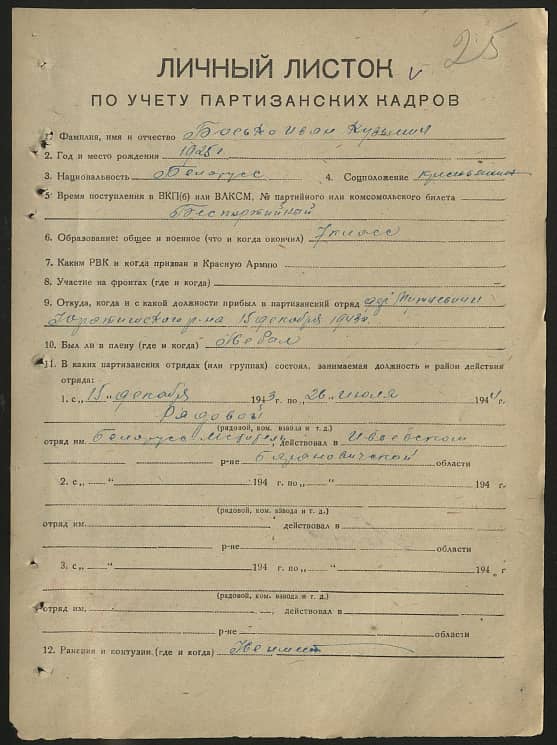 25
ЛИЧНЫЙ ЛИСТОК
ПО УЧЕТУ ПАРТИЗАНСКИХ КАДРОВ
1. Фамилия, имя и отчество Басько Иван Кузьмич
2. Год и место рождения 1925 г
3. Национальность Белорусс 4. Соцположение крестьянин
5. Время поступления в ВКП(б) или ВЛКСМ, № партийного или комсомольского билета
Беспартийной
6. Образование: общее и военное (что и когда окончил) 7 класс
7. Каким РВК и когда призван в Красную Армию
8. Участие на фронтах (где и когда)
9. Откуда, когда и с какой должности прибыл в партизанский отряд
Юратишского р-на 15 декабря 1943 г.
10. Был ли в плену (где и когда) Небыл
11. В каких партизанских отрядах (или группах) состоял, занимаемая должность и район действия
отряда:
1. с „15„ декабря 1943 г. по „26„ июля 1944 г.
Рядовой
(рядовой, ком. взвода и т. д.)
отряд им. Белорусс Мститель, действовал в Ивьевском
р-не Барановичской области
2. с „ — “ 194 г. по „ — “ 194 г.
(рядовой, ком. взвода и т. д.)
отряд им. , действовал в
р-не области
3. с „ — “ 194 г. по „ — “ 194 г
(рядовой, ком. взвода и т. д.)
отряд им. , действовал в
р-не области
12. Ранения и контузии (где и когда) Неимеит